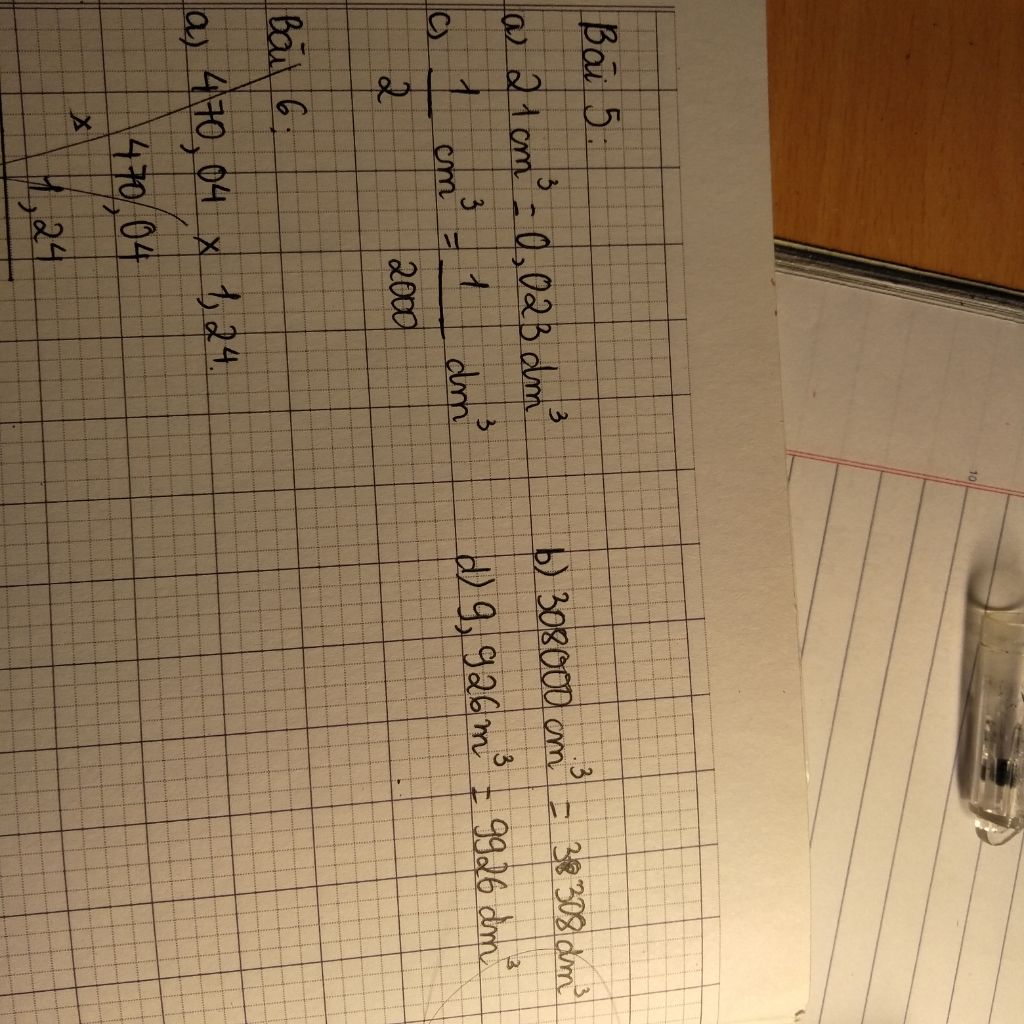 Bài 5:
a) 21cm³ = 0,023dm³ b) 308000cm³ = 308dm³
c) 1/2 cm³ = 1/2000 dm³ d) 9,926m³ = 9926dm³
Bài 6:
a) 470,04 x 1,24.
470,04
x
1,24
10